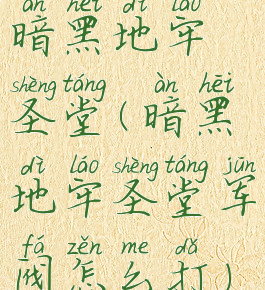 àn hēi dì láo
暗黑地牢
shèng táng àn hēi
圣堂(暗黑
dì láo shèng táng jūn
地牢圣堂军
fá zěn me dǎ
阀怎么打)